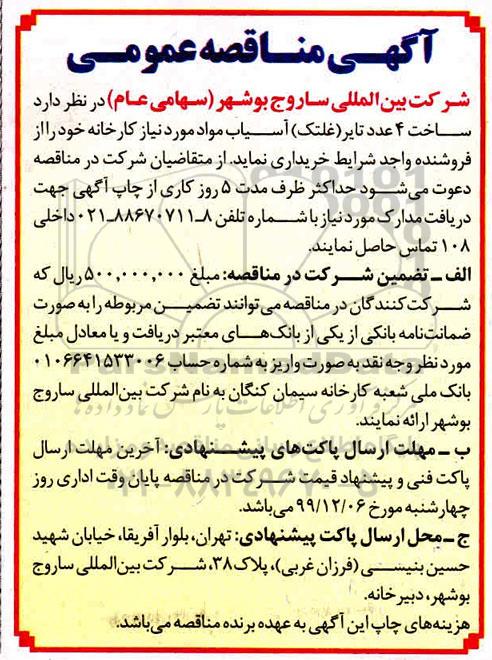 آگهـی مناقصه عمومـی
شرکت بین المللی ساروج بوشهر (سهامی عام) در نظر دارد
ساخت ۴ عدد تایر (غلتک) آسیاب مواد مورد نیاز کارخانه خود را از
فروشنده واجد شرایط خریداری نماید. از متقاضیان شرکت در مناقصه
دعوت می‌شود حداکثر ظرف مدت ۵ روز کاری از چاپ آگهی جهت
دریافت مدارک مورد نیاز با شماره تلفن ۸ـ۸۸۶۷۰۷۱۱ـ۰۲۱ داخلی
۱۰۸ تماس حاصل نمایند.
الف ـ تضمین شرکت در مناقصه: مبلغ ۵۰۰,۰۰۰,۰۰۰ ریال که
شرکت‌کنندگان در مناقصه می‌توانند تضمین مربوطه را به صورت
ضمانت‌نامه بانکی از یکی از بانک‌های معتبر دریافت و یا معادل مبلغ
مورد نظر وجه نقد به صورت واریز به شماره حساب ۰۱۰۶۶۴۱۵۳۳۰۰۶
بانک ملی شعبه کارخانه سیمان کنگان به نام شرکت بین‌المللی ساروج
بوشهر ارائه نمایند.
ب ـ مهلت ارسال پاکت‌های پیشنهادی: آخرین مهلت ارسال
پاکت فنی و پیشنهاد قیمت شرکت در مناقصه پایان وقت اداری روز
چهارشنبه مورخ ۹۹/۱۲/۰۶ می‌باشد.
ج ـ محل ارسال پاکت پیشنهادی: تهران، بلوار آفریقا، خیابان شهید
حسین بنیسی (فرزان غربی)، پلاک ۳۸، شرکت بین‌المللی ساروج
بوشهر، دبیرخانه.
هزینه‌های چاپ این آگهی به عهده برنده مناقصه می‌باشد.